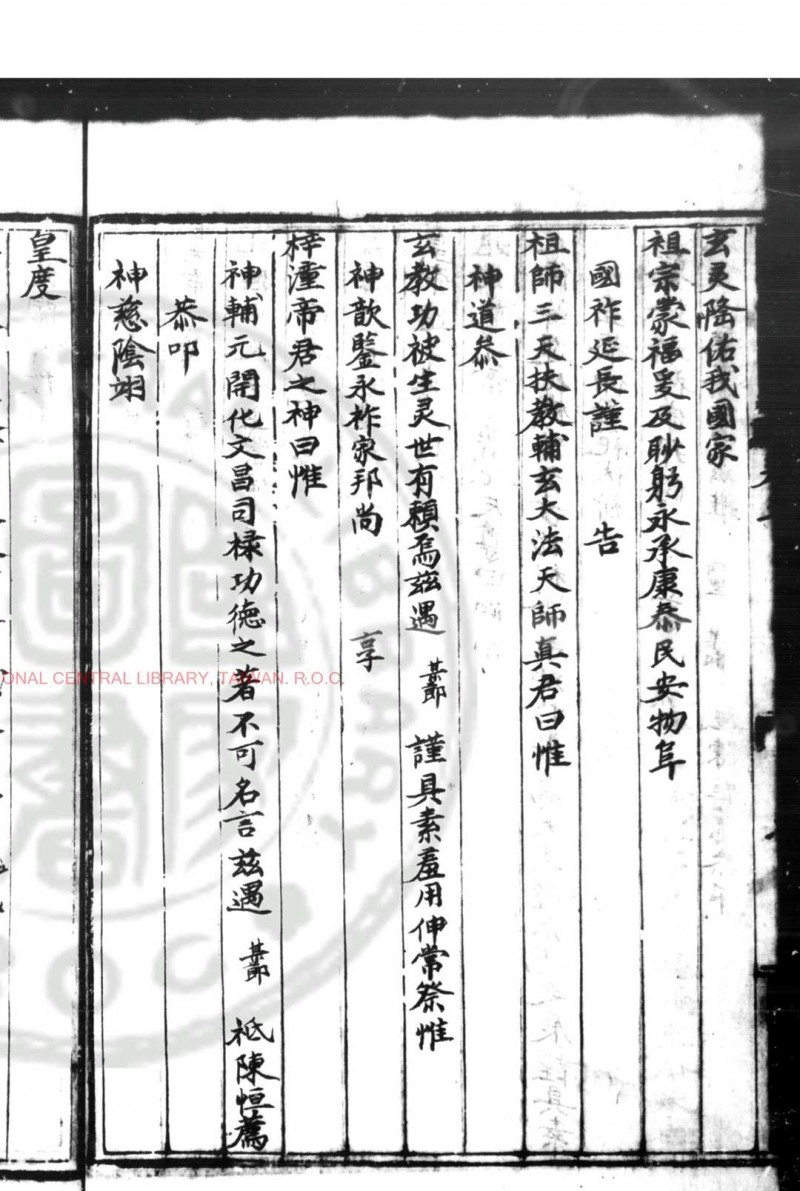 玄灵隆佑我國家
祖宗蒙福爰及眇躬永承康泰民安物阜
國祚延長謹 告
祖師三天扶教輔玄大法天師真君曰惟
神道叅
玄教功被生灵世有頼焉兹遇 某節 謹具素羞用伸常祭惟
神歆鑒永祚家邦尚 享
梓潼帝君之神曰惟
神輔元開化文昌司禄功德之著不可名言兹遇 某節 祗陳恒薦
恭叩
神慈陰翊
皇度
ONAL CENTRAL LIBRARY, TAIWAN. R.O.C.